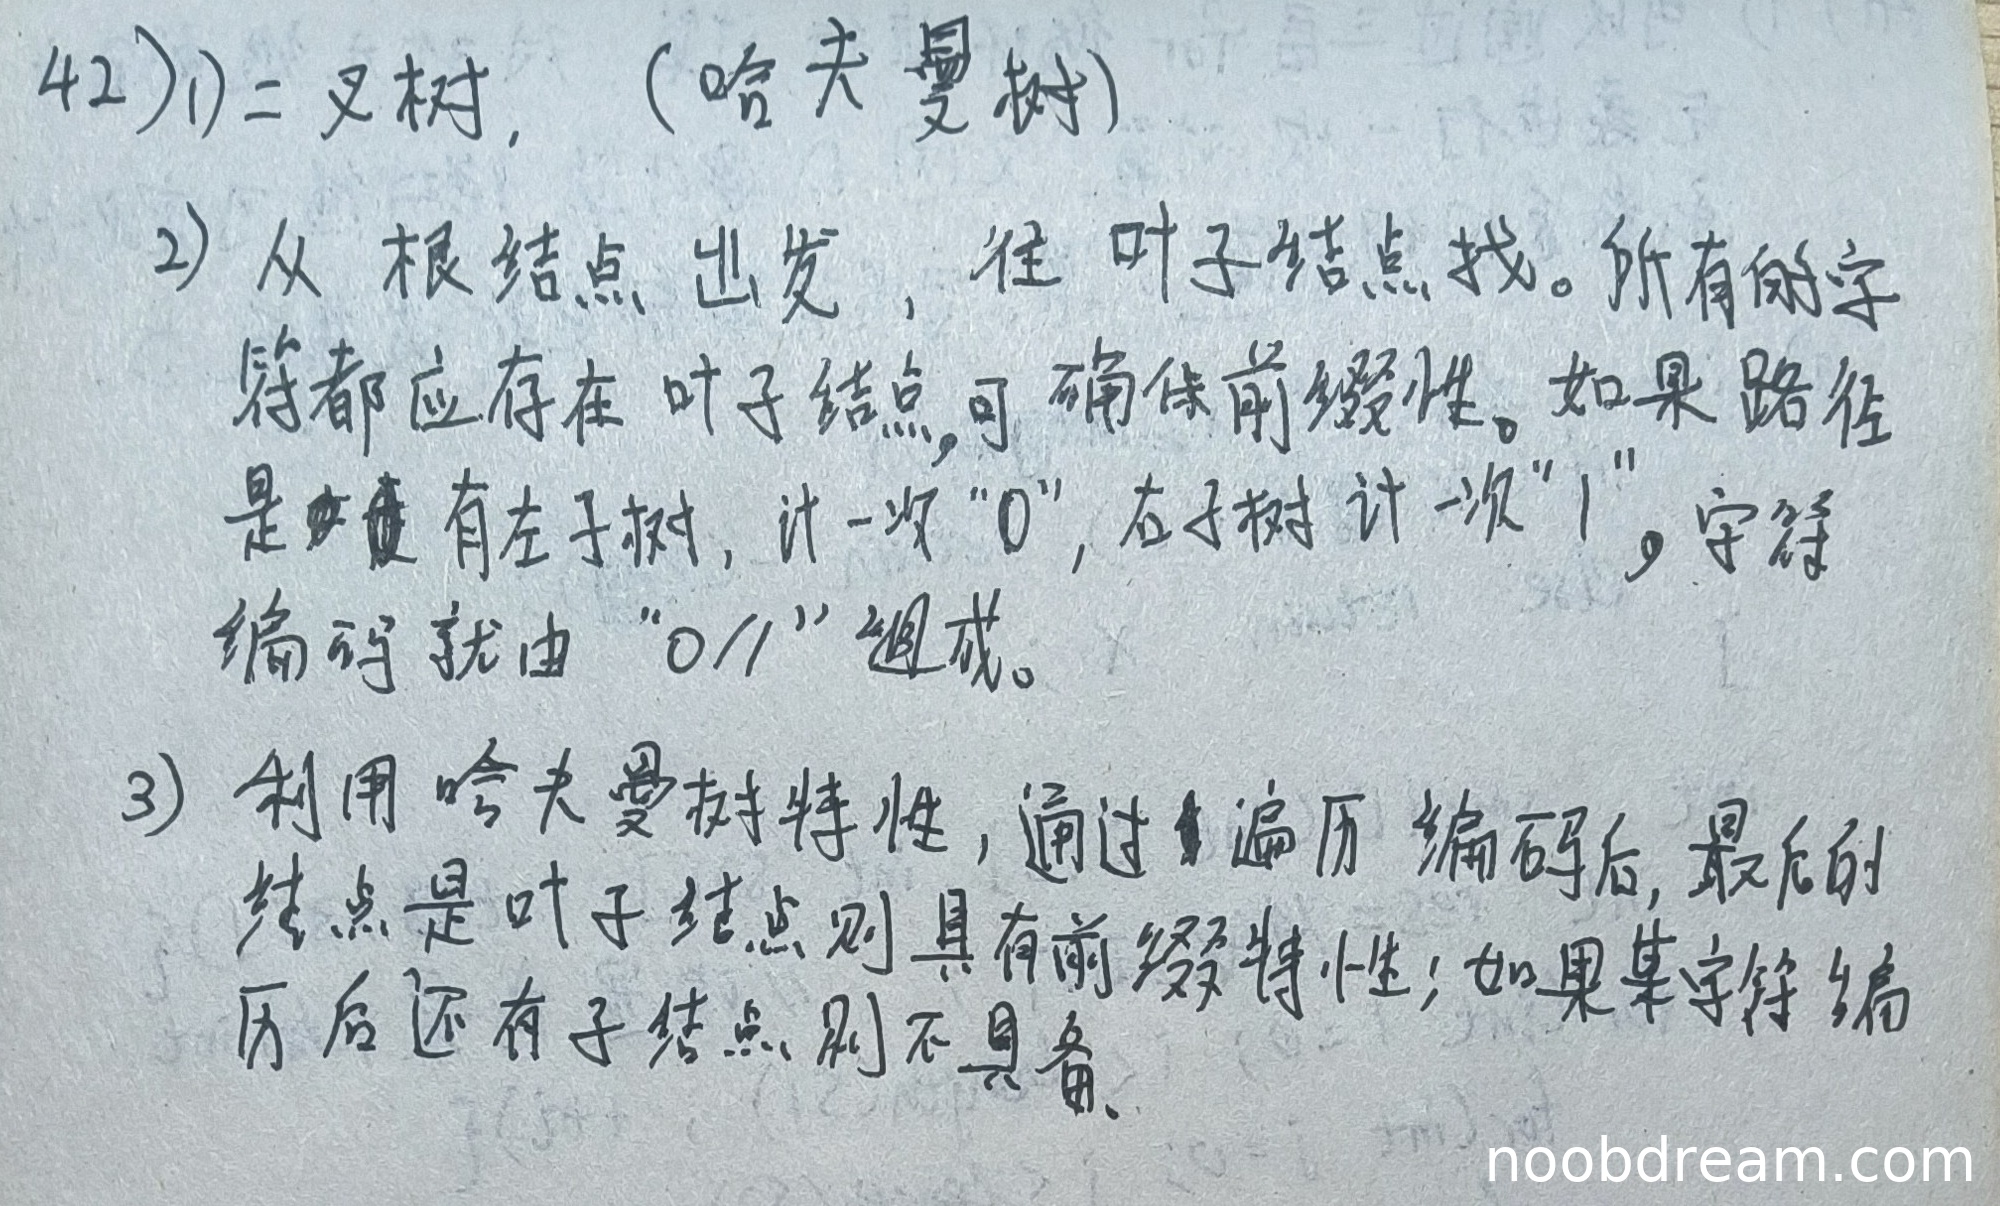 42) 1) 二叉树, (哈夫曼树)
2) 从根结点出发, 往叶子结点找。所有的字
符都应存在叶子结点,可确保前缀性。如果路径
是 有左子树, 计一次"0", 右子树计一次"1", 字符
编码就由"0/1"组成。
3) 利用哈夫曼树特性, 通过 遍历编码后, 最后的
结点是叶子结点则具有前缀特性; 如果某字符编
历后还有子结点则不具备、
noobdream.com